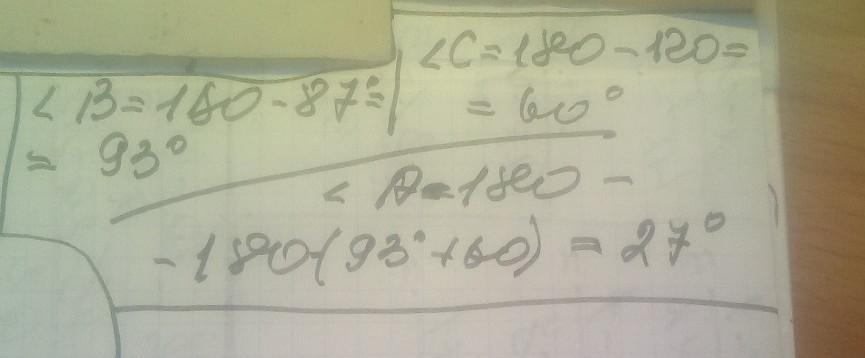 < B = 180 - 87° =
= 93°
< C = 180 - 120 =
= 60°
< A = 180 -
- 180 - (93° + 60) = 27°